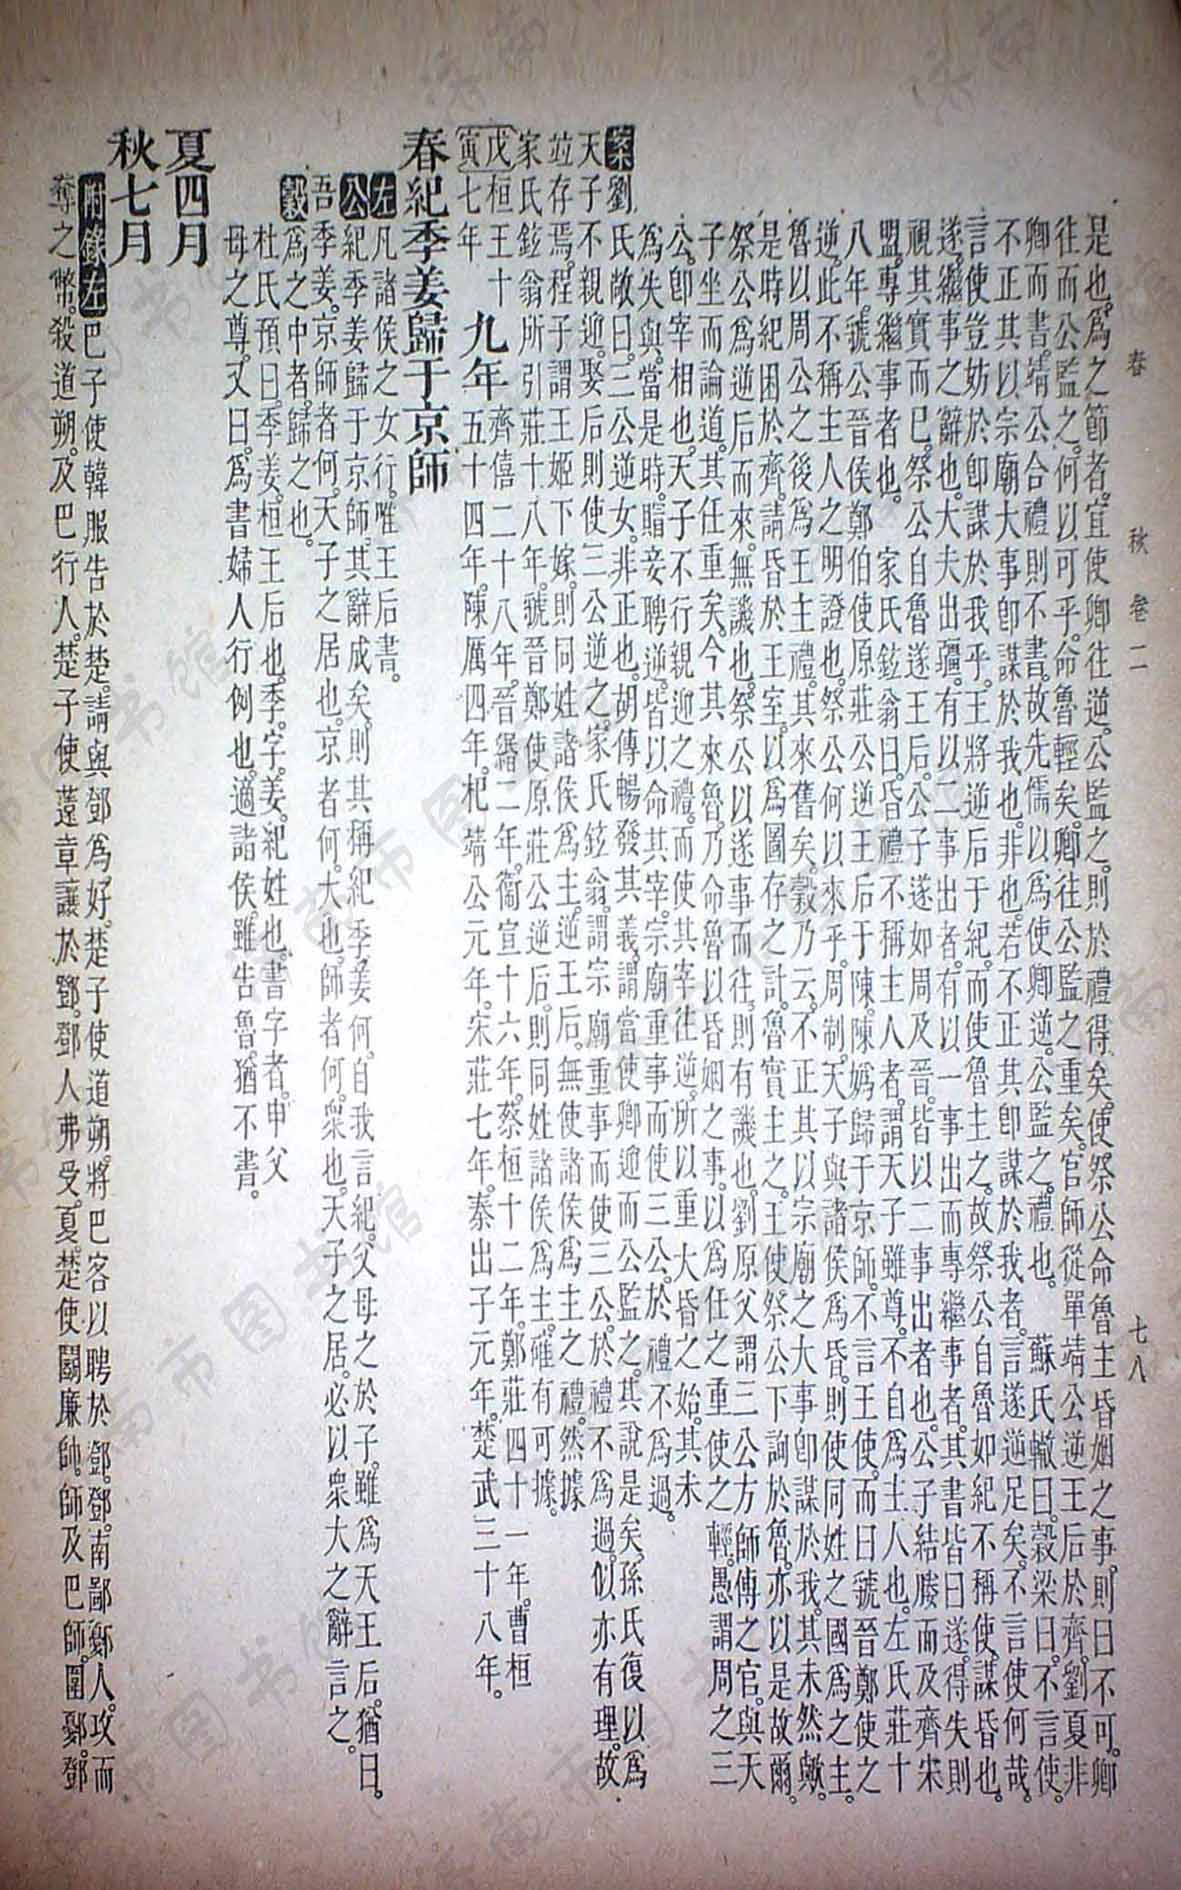 春 秋 卷二 七八
是也。爲之節者。宜使卿往逆。公監之。則於禮得矣。使祭公命魯主昏姻之事。則曰不可。卿
往而公監之。何以可乎。命魯輕矣。卿往公監之重矣。官師從單靖公逆王后於齊。劉夏非
卿而書。靖公合禮則不書。故先儒以爲使卿逆。公監之。禮也。 蘇氏轍曰。穀梁曰。不言使。
不正其以宗廟大事卽謀於我也。非也。若不正其卽謀於我者。言遂逆足矣。不言使何哉。
言使豈妨於卽謀於我乎。王將逆后于紀。而使魯主之。故祭公自魯如紀。不稱使。謀昏也。
遂。繼事之辭也。大夫出疆。有以二事出者。有以一事出而專繼事者。其書皆曰遂。得失則
視其實而已。祭公自魯遂王后。公子遂如周及晉。皆以二事出者也。公子結媵而及齊宋
盟。專繼事者也。 家氏鉉翁曰。昏禮不稱主人者。謂天子雖尊。不自爲主人也。左氏莊十
八年。虢公晉侯鄭伯使原莊公逆王后于陳。陳嬀歸于京師。不言王使。而曰虢晉鄭使之
逆。此不稱主人之明證也。祭公何以來乎。周制。天子與諸侯爲昏。則使同姓之國爲之主。
魯以周公之後。爲王主禮。其來舊矣。穀乃云。不正其以宗廟之大事卽謀於我。其未然歟。
是時紀困於齊。請昏於王室。以爲圖存之計。魯實主之。王使祭公下詢於魯。亦以是故爾。
祭公爲逆后而來。無譏也。祭公以遂事而往。則有譏也。劉原父謂三公方師傅之官。與天
子坐而論道。其任重矣。今其來魯。乃命魯以昏姻之事。以爲任之重。使之輕。愚謂周之三
公。卽宰相也。天子不行親迎之禮。而使其宰往逆。所以重大昏之始。其未
爲失與。當是時。妾聘逆。皆以命其宰。宗廟重事而使三公。於禮不爲過。
案劉氏敞曰。三公逆女。非正也。胡傳暢發其義。謂當使卿迎而公監之。其說是矣。孫氏復以爲
天子不親迎。娶后則使三公逆之。家氏鉉翁。謂宗廟重事而使三公。於禮不爲過。似亦有理。故
竝存焉。程子謂王姬下嫁。則同姓諸侯爲主。逆王后。無使諸侯爲主之禮。然據
家氏鉉翁所引莊十八年。虢晉鄭使原莊公逆后。則同姓諸侯爲主。確有可據。
戊寅 桓王十七年 九年 齊僖二十八年。晉緡二年。衞宣十六年。蔡桓十二年。鄭莊四十一年。曹桓
五十四年。陳厲四年。杞靖公元年。宋莊七年。秦出子元年。楚武三十八年。
春紀季姜歸于京師
左凡諸侯之女行。唯王后書。
公紀季姜歸于京師。其辭成矣。則其稱紀季姜何。自我言紀。父母之於子。雖爲天王后。猶曰。
吾季姜。京師者何。天子之居也。京者何。大也。師者何。衆也。天子之居。必以衆大之辭言之。
穀爲之中者。歸之也。
杜氏預曰。季姜。桓王后也。季。字。姜。紀姓也。書字者。申父
母之尊。又曰。爲書婦人行例也。適諸侯。雖告魯。猶不書。
夏四月
秋七月
附錄左巴子使韓服告於楚。請與鄧爲好。楚子使道朔。將巴客以聘於鄧。鄧。南鄙鄾人。攻而
奪之幣。殺道朔。及巴行人。楚子使薳章讓於鄧。鄧人弗受。夏。楚使鬭廉帥。師及巴師。圍鄾。鄧